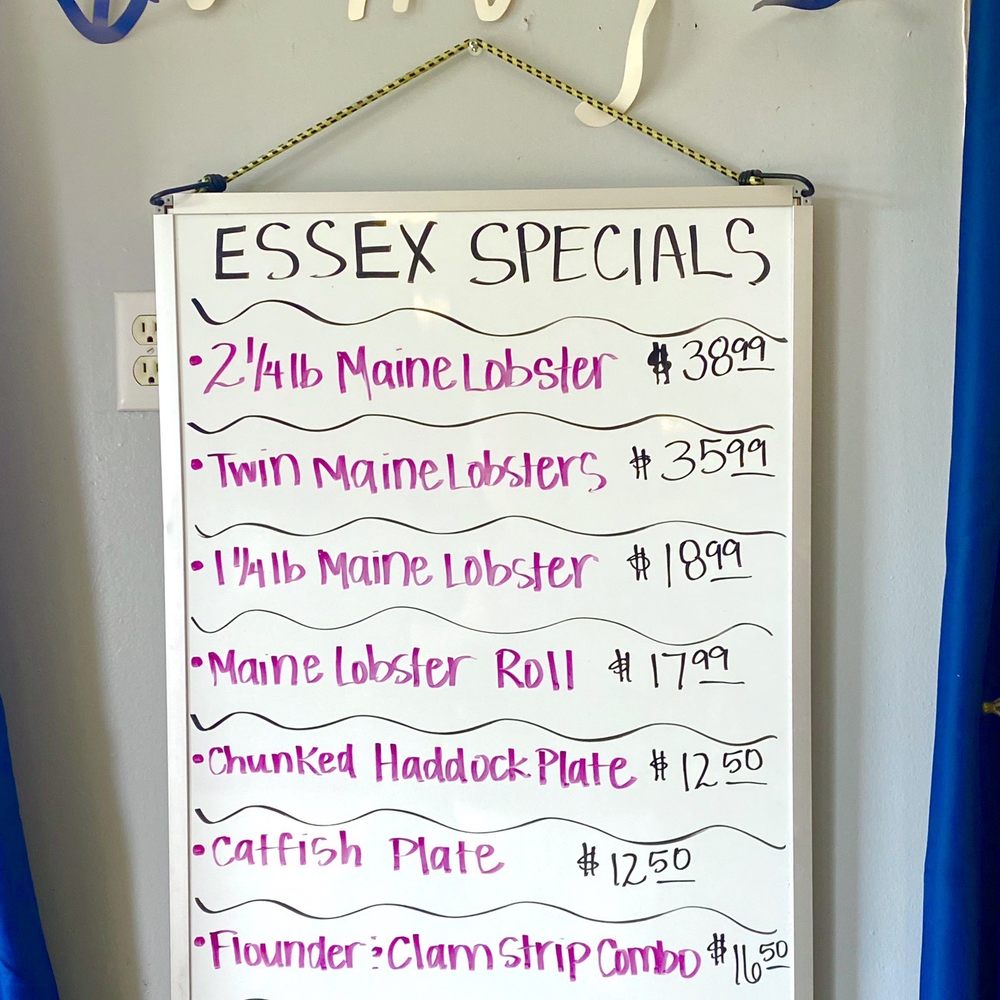 ESSEX SPECIALS
• 2 1/4 lb Maine Lobster $38.99
• Twin Maine Lobsters $35.99
• 1 1/4 lb Maine Lobster $18.99
• Maine Lobster Roll $17.99
• Chunked Haddock Plate $12.50
• Catfish Plate $12.50
• Flounder & Clam Strip Combo $16.50